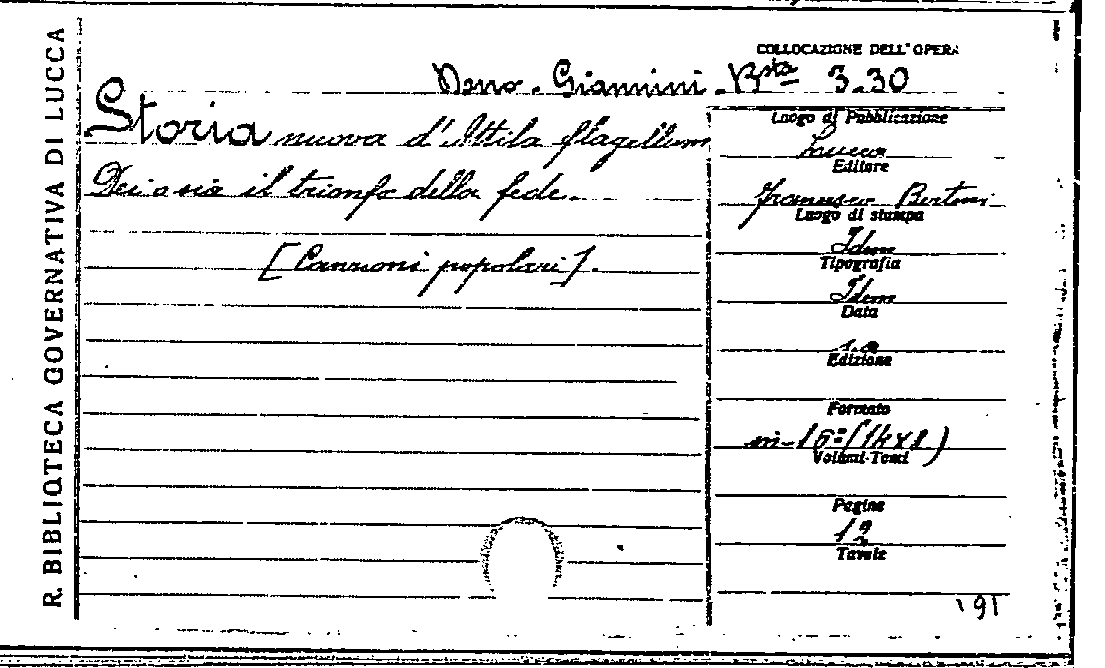 R. BIBLIOTECA GOVERNATIVA DI LUCCA
COLLOCAZIONE DELL'OPERA
Dono. Giannini. Bsta 3.30
Storia nuova d'Attila flagellum
Dei osia il trionfo della fede.
[Canzoni popolari].
Luogo di Pubblicazione
Lucca
Editore
Francesco Bertini
Luogo di stampa
Idem
Tipografia
Idem
Data
Edizione
Formato
in-16º (14x8)
Volumi-Tomi
Pagine
12
Tavole